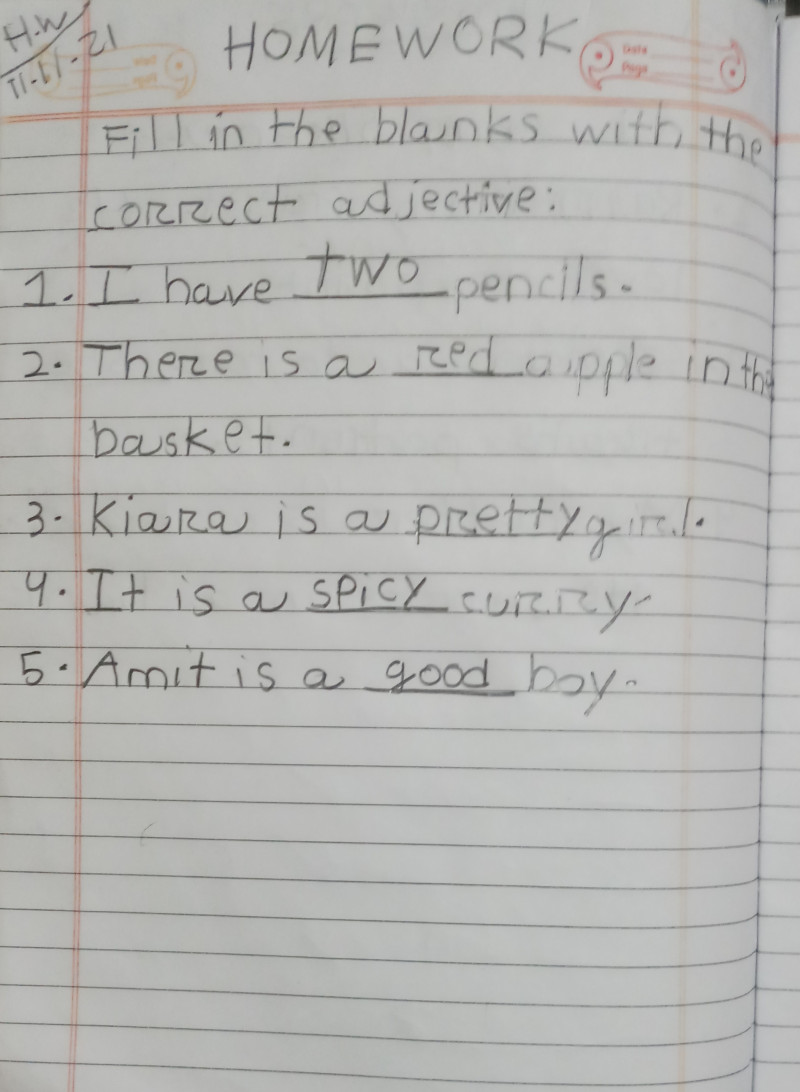 H.W
11-61-21
HOMEWORK
Date
Page
Fill in the blanks with the
correct adjective:
1. I have two pencils.
2. There is a red apple in the
basket.
3. Kiara is a pretty girl.
4. It is a spicy curry.
5. Amit is a good boy.